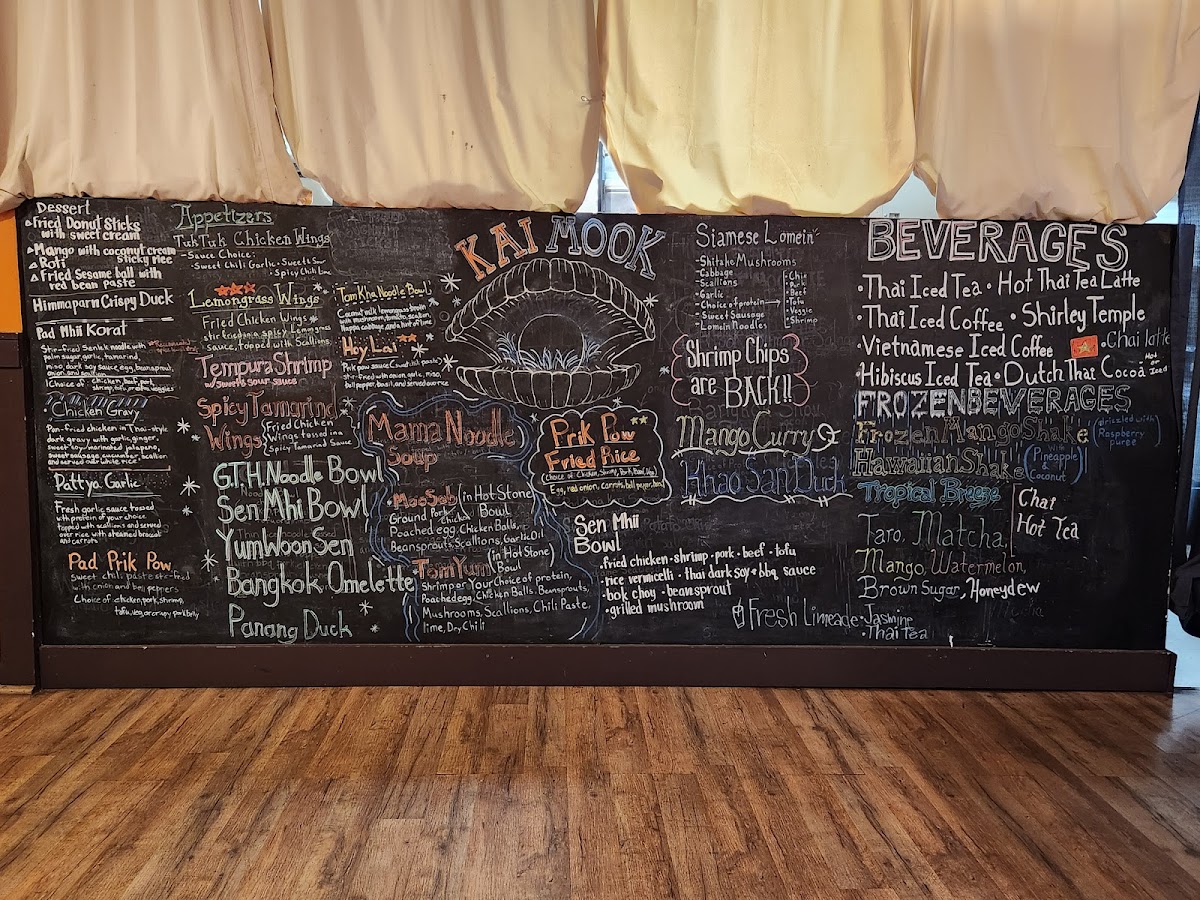 Dessert
Fried Donut Sticks
with sweet cream
Mango with coconut cream
sticky rice
Roti
Fried Sesame ball with
red bean paste
Himmaparn Crispy Duck
Pad Mhii Korat
Stir-fried Senlek noodle with
palm sugar, garlic, tamarind,
miso, dark soy sauce, egg, beansprout,
onion, and scallion
Choice of: chicken, beef, pork,
shrimp, tofu, or veggies
Chicken Gravy
Pan-fried chicken in Thai-style
dark gravy with garlic, ginger,
soy sauce, marinated jalapeno,
sweet sausage, cucumber, scallion
and served over white rice
Pattya Garlic
Fresh garlic sauce tossed
with protein of your choice
topped with scallions and served
over rice with steamed broccoli
and carrots
Pad Prik Pow
sweet chili paste stir-fried
with onion and bell peppers
Choice of chicken, pork, shrimp,
tofu, veg, or crispy pork belly
Appetizers
TukTuk Chicken Wings
-Sauce Choice:
-Sweet Chili Garlic
Lemongrass Wings
Fried Chicken Wings
stir fried in a spicy Lemongrass
sauce, topped with Scallions
Tempura Shrimp
w/ sweet & sour sauce
Spicy Tamarind
Wings
Fried Chicken
Wings tossed in a
Spicy Tamarind Sauce
G.T.H. Noodle Bowl
Sen Mhi Bowl
YumWoon Sen
Bangkok Omelette
Panang Duck
Tom Kha Noodle Bowl
Coconut milk lemongrass broth
with mushroom, tomato, scallion,
Nappa cabbage, and a hint of lime
Hoy Lai
Prik pow sauce (sweet chili paste)
Stir-fried with onion, garlic, miso,
bell pepper, basil, and served over rice
Mama Noodle
Soup
MooSab (in Hot Stone
Bowl
Ground Pork/chicken
Poached egg, Chicken Balls,
Beansprouts, Scallions, Garlic Oil
TomYum (in Hot Stone
Bowl)
Shrimp or Your Choice of protein,
Poached egg, Chicken Balls, Beansprouts,
Mushrooms, Scallions, Chili Paste,
lime, Dry Chili
KAI MOOK
Prik Pow
Fried Rice
Choice of Chicken, Shrimp, Pork, Beef, Veg
Egg, red onion, carrots, bell peper, basil
Sen Mhii
Bowl
•fried chicken •shrimp •pork •beef •tofu
•rice vermicelli •Thai dark soy •bbq sauce
•bok choy •beansprout
•grilled mushroom
Siamese Lomein
-Shitake Mushrooms
-Cabbage
-Scallions
-Garlic
-Choice of protein →
-Sweet Sausage
-Lomein Noodles
-Pork
-Beef
-Tofu
-Veggie
-Shrimp
Shrimp Chips
are BACK!!
Mango Curry
Khao San Duck
Fresh Limeade •Jasmine
•Thai Tea
BEVERAGES
•Thai Iced Tea •Hot Thai Tea Latte
•Thai Iced Coffee •Shirley Temple
•Vietnamese Iced Coffee •Chai latte
•Hibiscus Iced Tea •Dutch Thai Cocoa Hot Iced
FROZEN BEVERAGES
Frozen Mango Shake (drizzled with
Raspberry
puree)
Hawaiian Shake (with
Pineapple
& Coconut)
Tropical Breeze
Taro, Matcha,
Mango, Watermelon,
Brown Sugar, Honeydew
Chai
Hot Tea